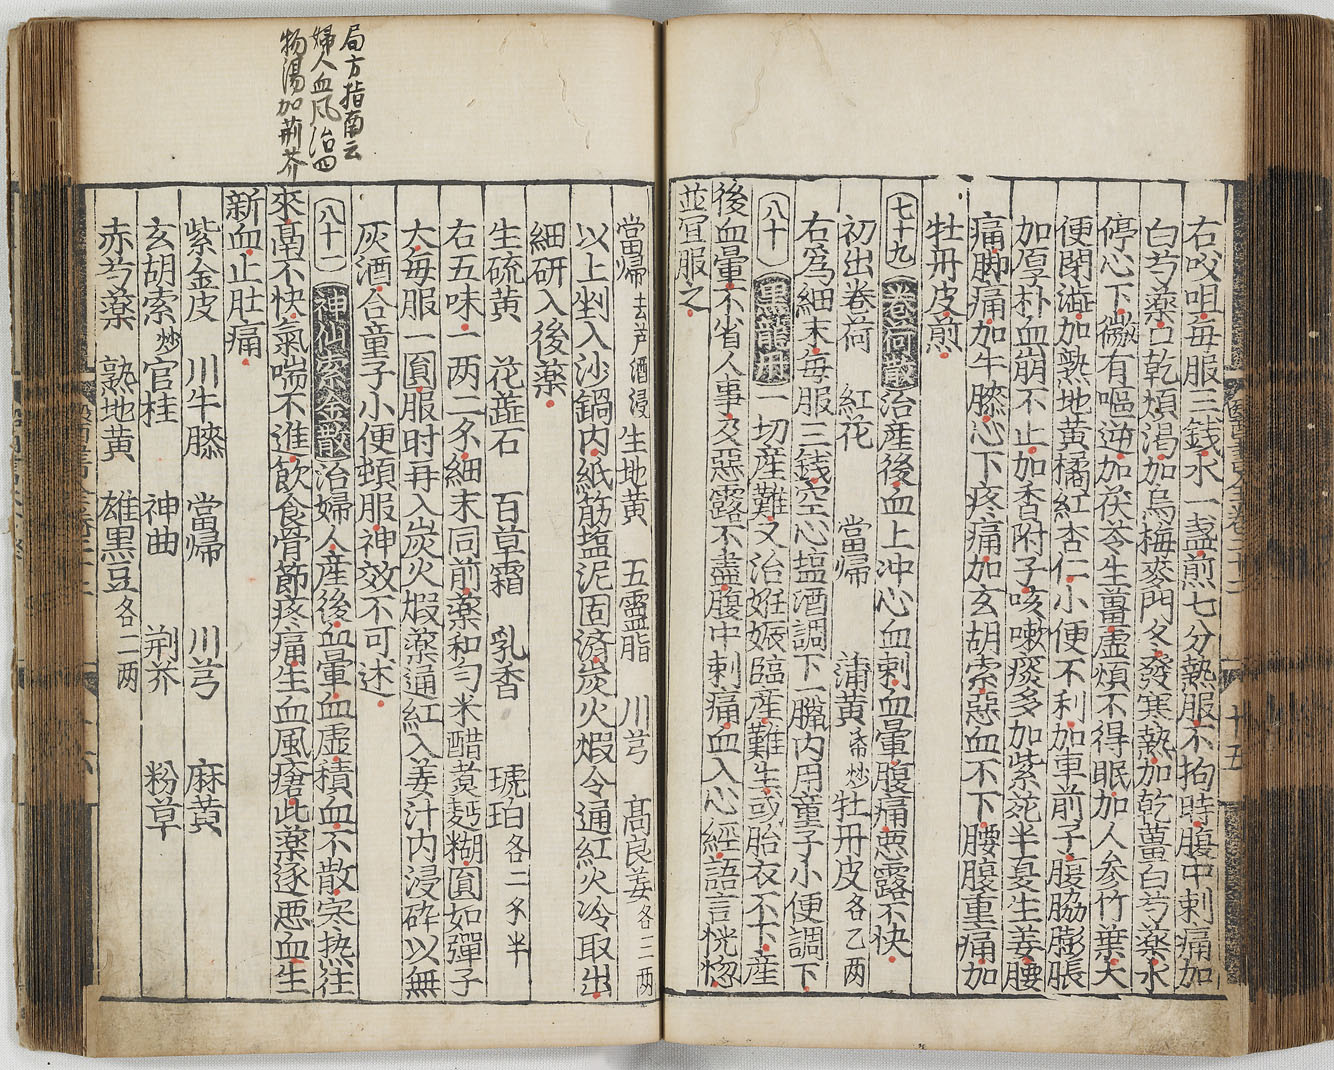 右㕮咀每服三錢水一盞煎七分熱服不拘時腹中刺痛加
白芍藥口乾煩渴加烏梅麥門冬發寒熱加乾薑白芍藥水
停心下微有嘔逆加茯苓生薑虛煩不得眠加人参竹葉大
便閉澁加熟地黃橘紅杏仁小便不利加車前子腹脇膨脹
加厚朴血崩不止加香附子咳嗽痰多加紫苑半夏生姜腰
痛脚痛加牛膝心下疼痛加玄胡索惡血不下腰腹重痛加
牡丹皮煎
七十九 卷荷散 治産後血上冲心血刺血暈腹痛悪露不快
初出卷荷 紅花 當歸 蒲黃 布炒 牡丹皮 各乙两
右爲細末每服三錢空心塩酒調下一臘内用童子小便調下
八十 黒龍丹 一切産難又治妊娠臨産難生或胎衣不下産
後血暈不省人事及惡露不盡腹中刺痛血入心經語言恍惚
並宜服之
局方指南云
婦人血風治四
物湯加荊芥
當歸 去芦酒浸 生地黃 五靈脂 川芎 髙良姜 各三两
以上剉入沙鍋内紙筋塩泥固济炭火煆令通紅火冷取出
細研入後薬
生硫黃 花蕋石 百草霜 乳香 琥珀 各二𠆤半
右五味一两二𠆤細末同前薬和勻米醋煑麪糊圓如彈子
大每服一圓服时再入炭火煆薬通紅入姜汁内浸碎以無
灰酒合童子小便頓服神效不可述
八十一 神仙索金散 治婦人産後血暈血虛積血不散寒热往
來鬲不快氣喘不進飲食骨節疼痛生血風瘡此薬逐悪血生
新血止肚痛
紫金皮 川牛膝 當歸 川芎 麻黃
玄胡索 炒 官桂 神曲 荊芥 粉草
赤芍藥 熟地黄 雄黒豆 各二两